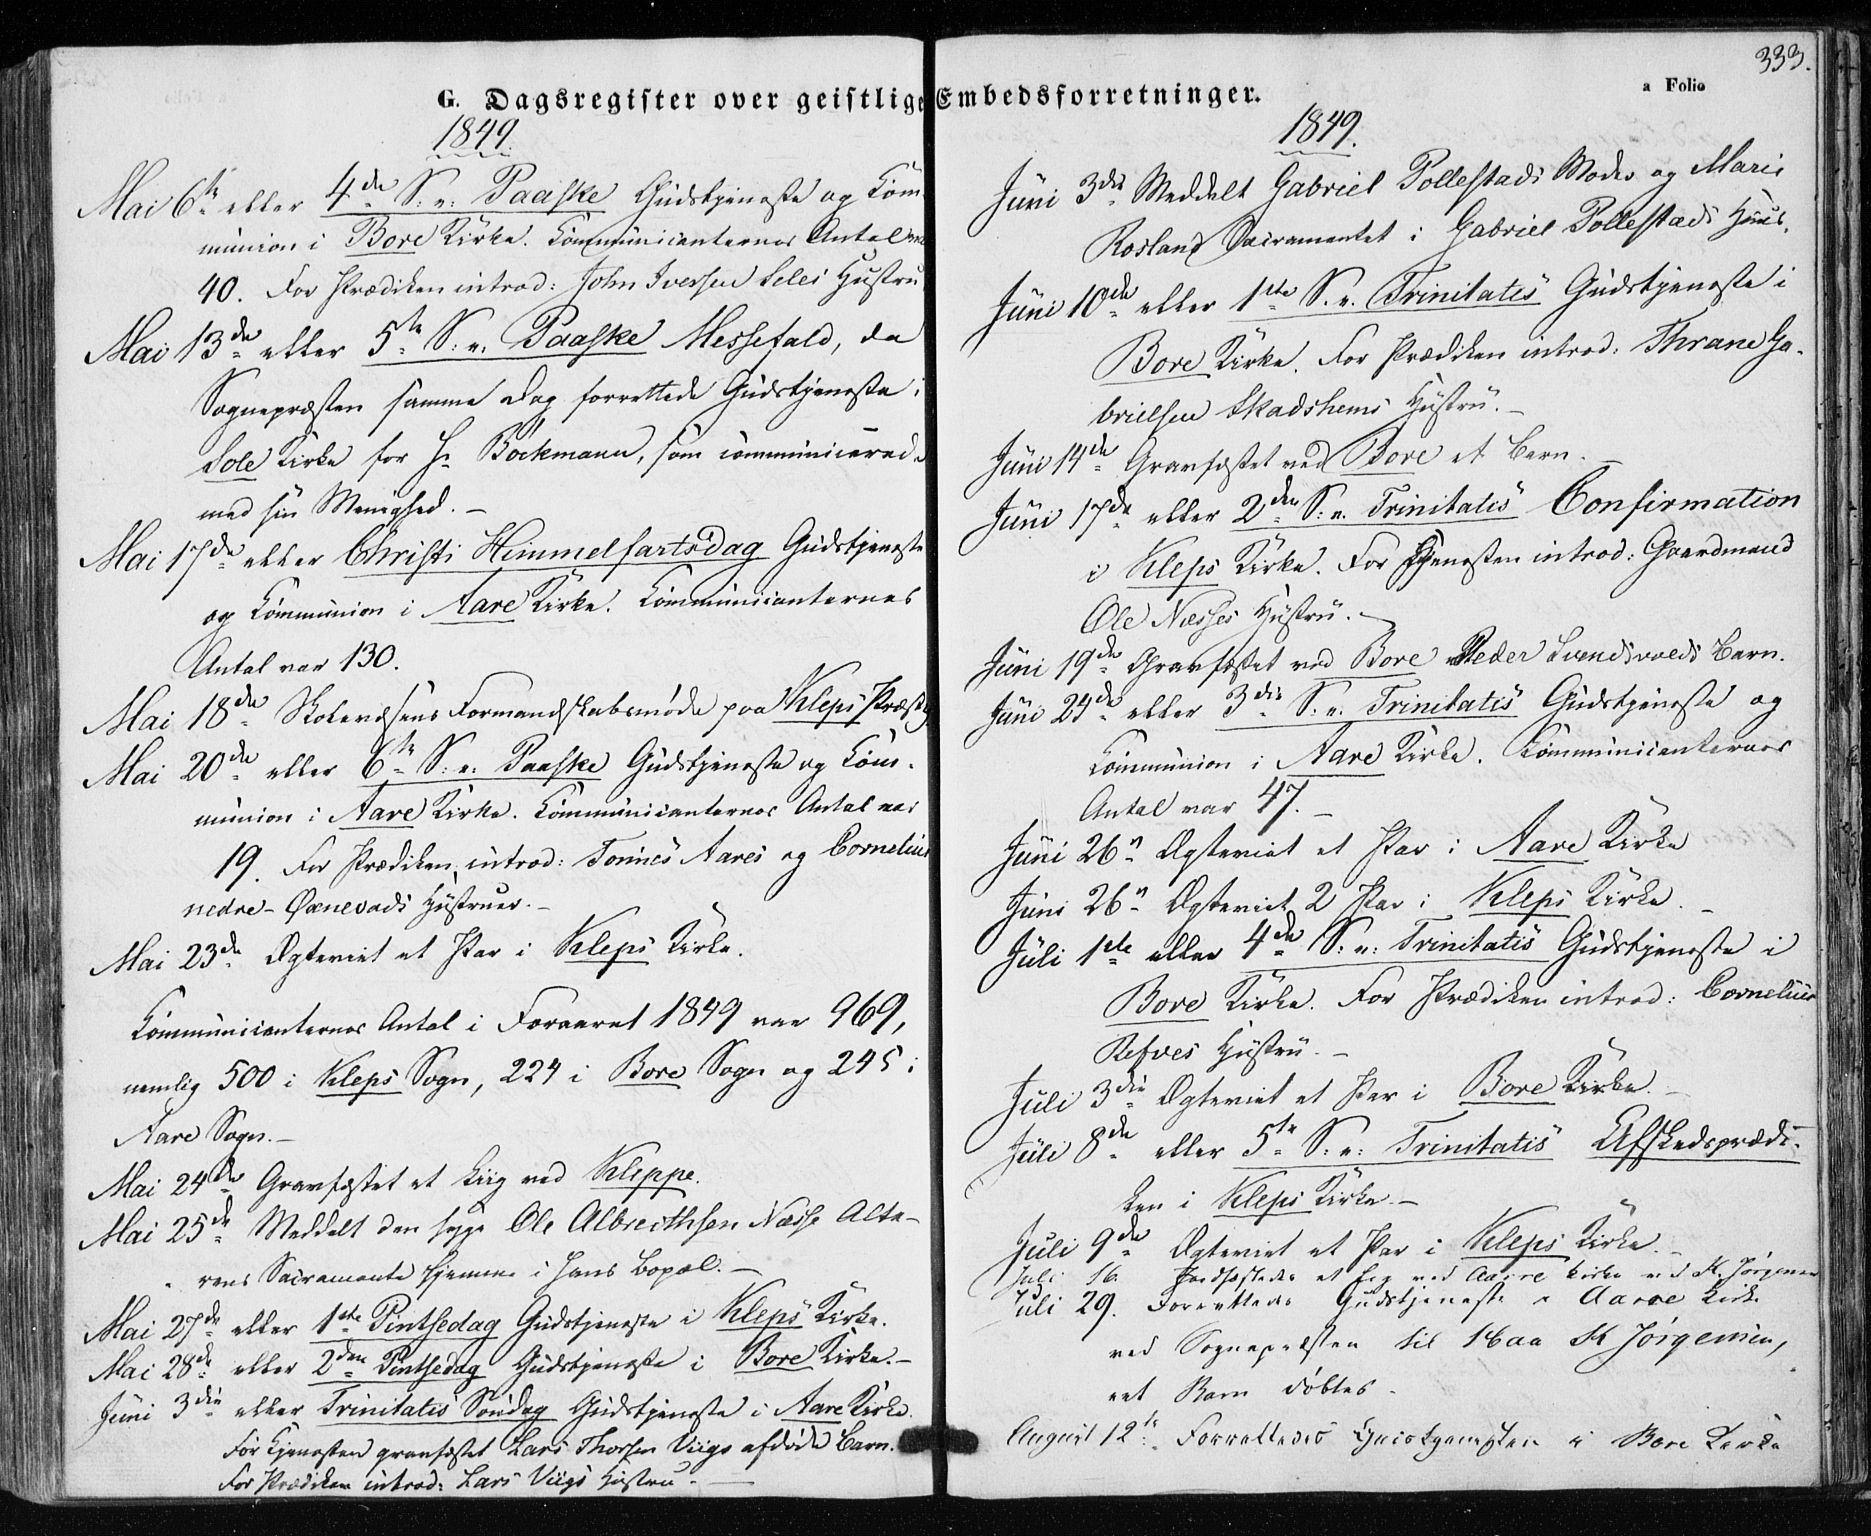 333.
G. Dagsregister over geistlige Embedsforretninger.
a Folio
1849.
Mai 6te eller 4de S. e. Paaske Gudstjeneste og Com-
munion i Bore Kirke. Communicanternes Antal var
40. For Prædiken introd: John Iversen Seles Hustru
Mai 13de eller 5te S: e. Paaske Messefald, da
Sognepræsten samme Dag forrettede Gudstjeneste i
Sole Kirke for Hr Böckmann, som communicerede
med sin Menighed. –
Mai 17de eller Christi Himmelfartsdag Gudstjeneste
og Communion i Aare Kirke. Communicanternes
Antal var 130.
Mai 18de Skolevæsens Formandskabsmøde paa Kleps Præstg
Mai 20de eller 6te S: e. Paaske Gudstjeneste og Com-
munion i Aare Kirke. Communicanternes Antal var
19. For Prædiken introd: Tonnes Aares og Cornelius
nedre-Øxnevads Hustruer. –
Mai 23de Ægteviet et Par i Kleps Kirke.
Communicanternes Antal i Foraaret 1849 var 969,
nemlig 500 i Kleps Sogn, 224 i Bore Sogn og 245 i
Aare Sogn. –
Mai 24de Gravfæstet et Liig ved Kleppe.
Mai 25de Meddelt den syge Ole Albrecthsen Næsse Alte-
rens Sacramente hjemme i hans Bopæl. –
Mai 27de eller 1ste Pintsedag Gudstjeneste i Kleps Kirke.
Mai 28de eller 2den Pintsedag Gudstjeneste i Bore Kirke. –
Juni 3die eller Trinitatis Søndag Gudstjeneste i Aare Kirke.
For Tjenesten gravfæstet Lars Thorsen Viigs afdøde Barn.
For Prædiken introd: Lars Viigs Hustru. –
1849.
Juni 3die Meddelt Gabriel Pollestads Moder og Maris
Rosland Sacramentet i Gabriel Pollestads Huus.
Juni 10de eller 1ste S. e. Trinitatis Gudstjeneste i
Bore Kirke. For Prædiken introd: Thrane Ga-
brielsen Skadshems Hustru. –
Juni 14de Gravfæstet ved Bore et Barn. –
Juni 17de eller 2den S: e. Trinitatis Confirmation
i Kleps Kirke. For Tjenesten introd: Gaardmand
Ole Næsses Hustru. –
Juni 19de Gravfæstet ved Bore Peder Svendsvolds Barn.
Juni 24de eller 3die S: e. Trinitatis Gudstjeneste og
Communion i Aare Kirke. Communicanternes
Antal var 47. –
Juni 26n Ægteviet et Par i Aare Kirke
Juni 26n Ægteviet 2 Par i Kleps Kirke. –
Juli 1ste eller 4de S: e: Trinitatis Gudstjeneste i
Bore Kirke. For Prædiken introd: Cornelius
Refves Hustru. –
Juli 3die Ægteviet et Par i Bore Kirke. –
Juli 8de eller 5te S: e: Trinitatis Afskedsprædi-
ken i Kleps Kirke –
Juli 9de Ægteviet et Par i Kleps Kirke. –
Juli 16. Jordfæstedes et Lig ved Aare Kirke ved K. Jørgensen
Juli 29. Forrettedes Gudstjeneste i Aarre Kirke
ved Sognepræsten til Haa K Jørgensen,
eet Barn døbtes –
August 12te Forrettedes Gudstjenesten i Bore Kirke